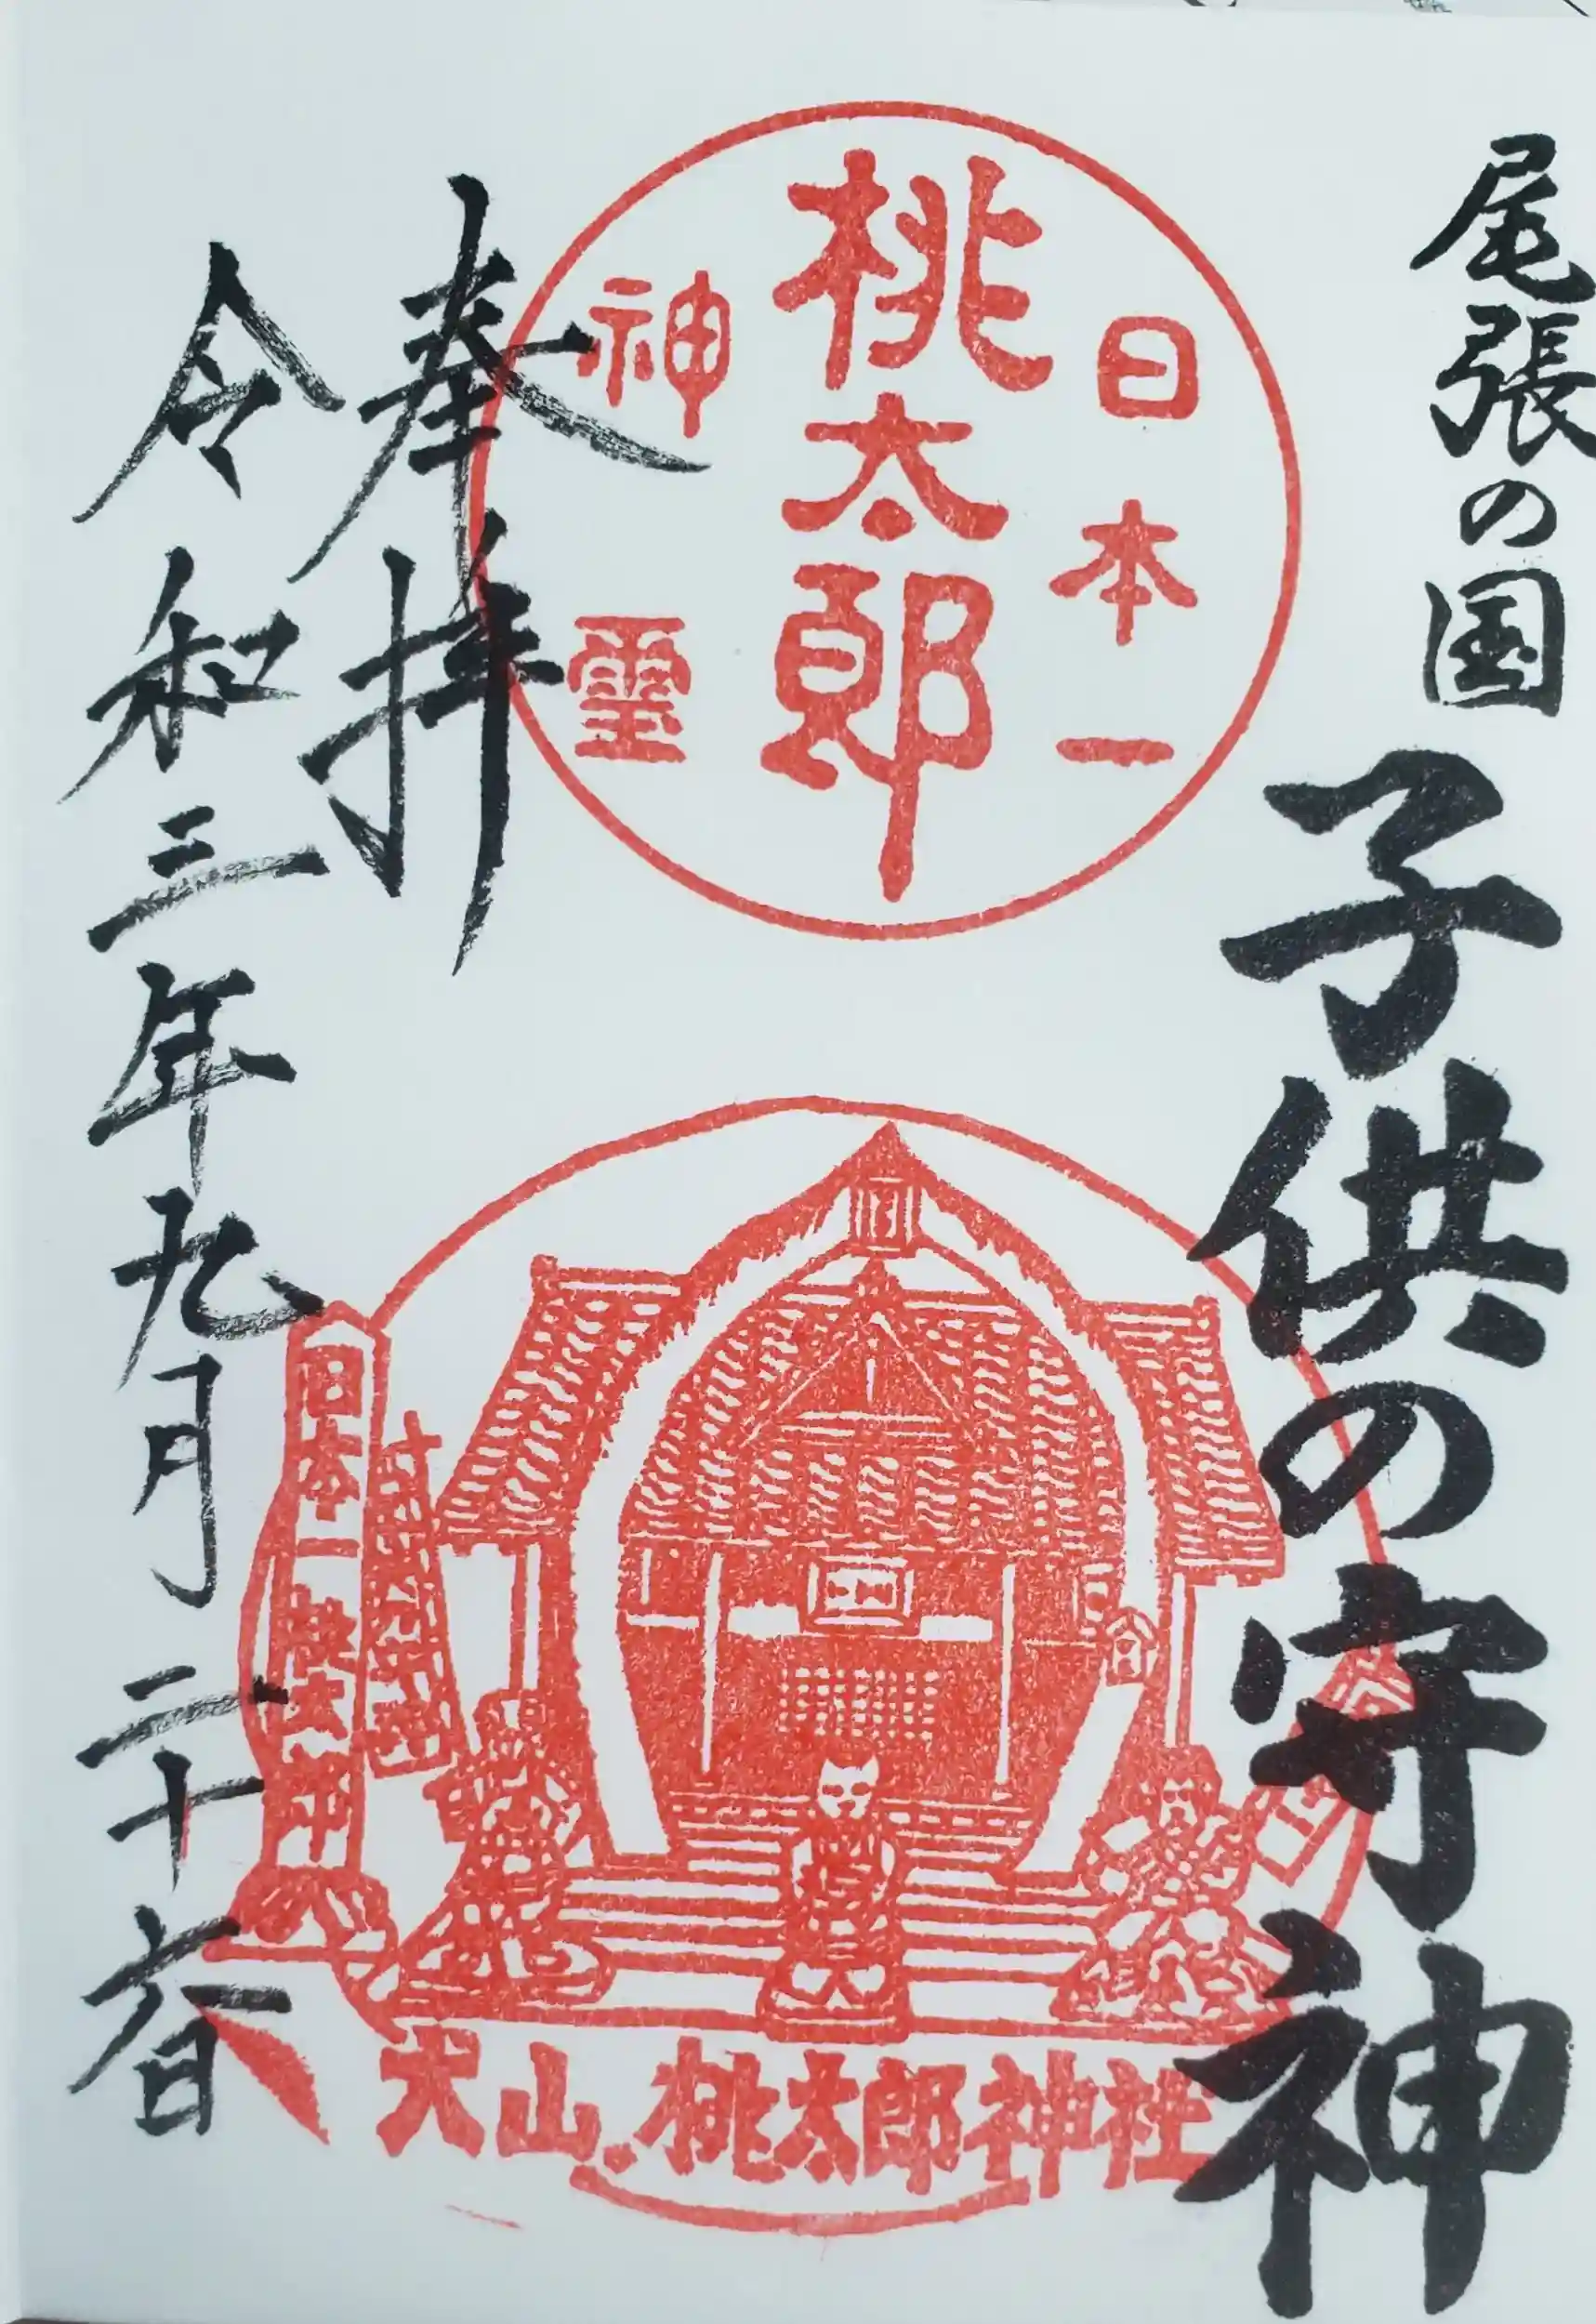 尾張の国
子供の守神
日本一
桃太郎
神霊
奉拝
令和三年九月二十六日
日本一桃太郎
犬山 桃太郎神社